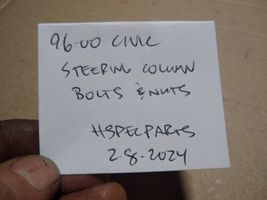 96-00 CIVIC
STEERING COLUMN
BOLTS & NUTS
HSPECPARTS
2-8-2024